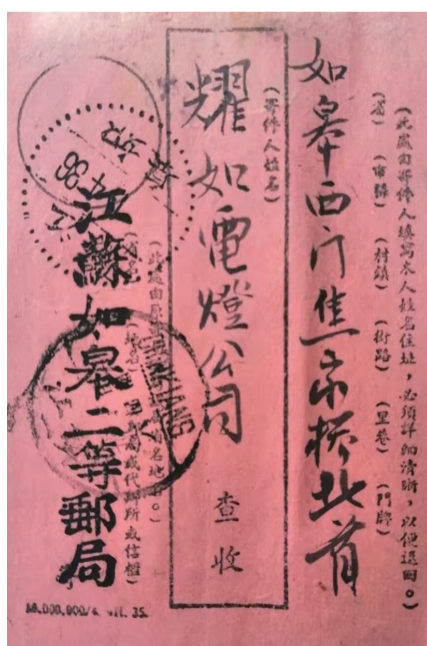 (此處由寄件人填寫本人姓名住址,必須詳細清晰,以便退回。)
(省) (市縣) (村鎮) (街路) (里巷) (門牌)
如皋西门焦家桥北首
(寄件人姓名)
耀如電燈公司 查收
(此處由原 局名地名。)
(縣名) 郵局或代辦所或信櫃)
江蘇如皋二等郵局
000,000/4. vii. 35.
36